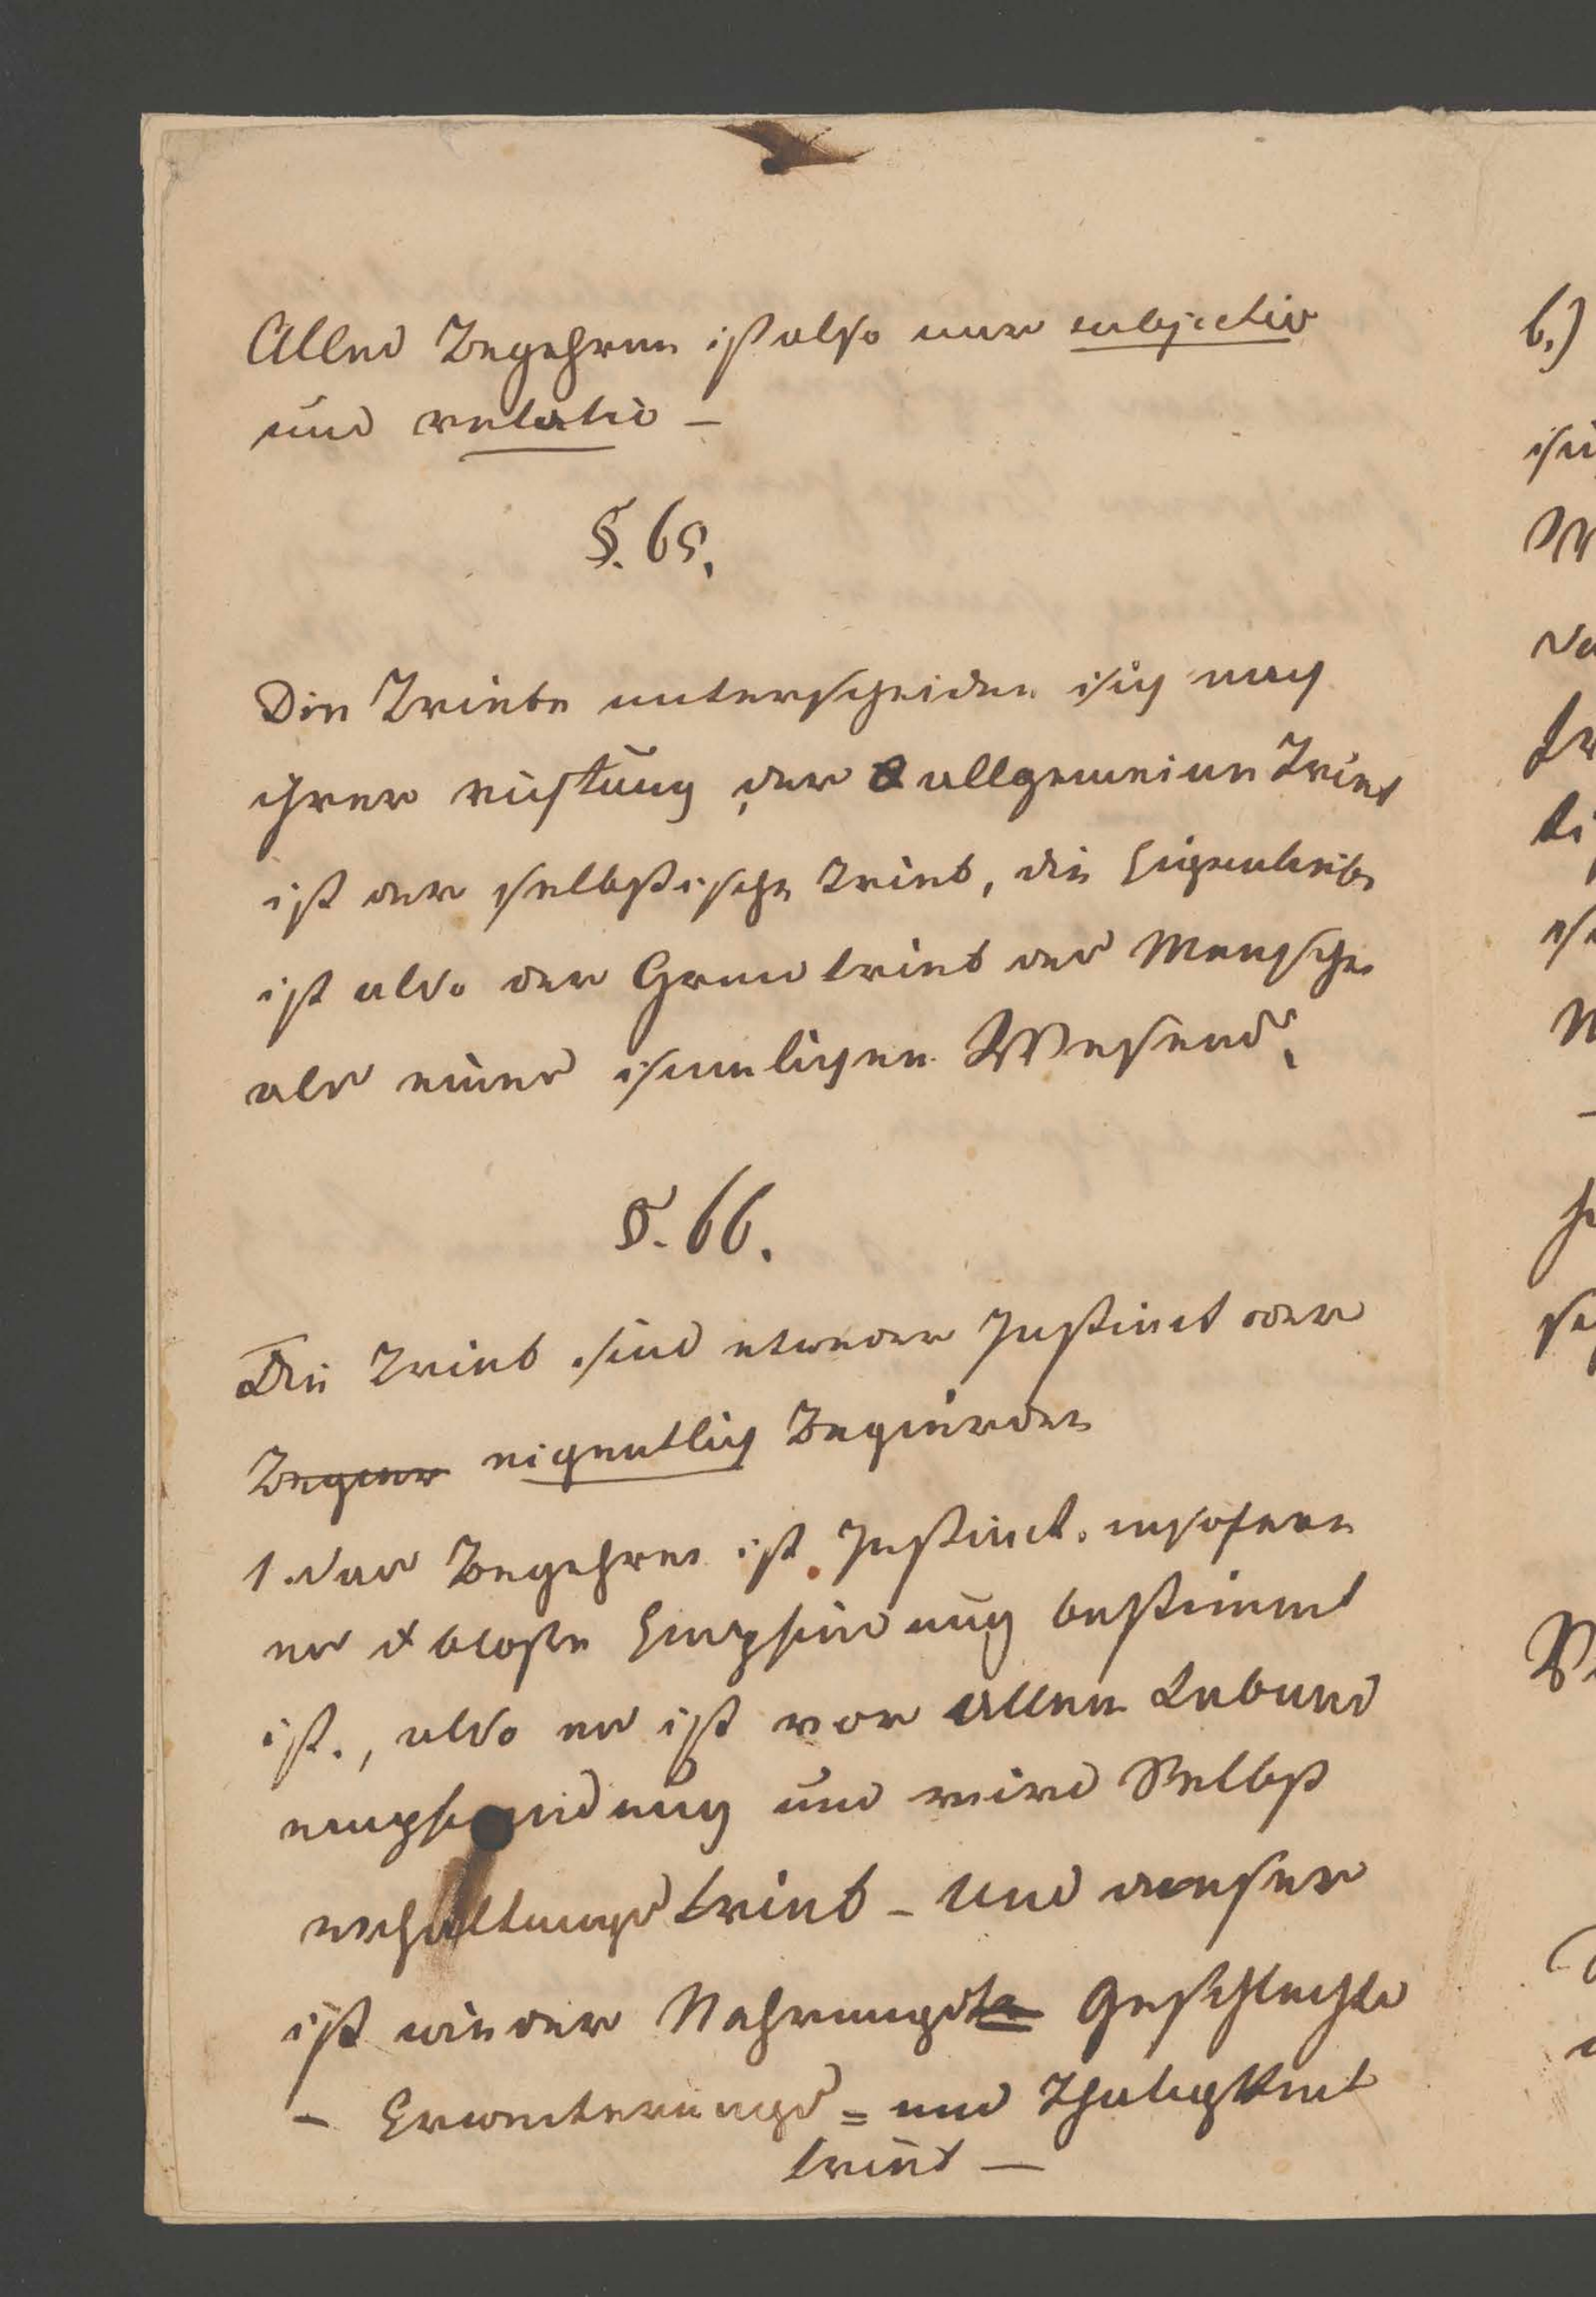 Alles Begehren ist also nur subjectiv
und relativ –
§. 65.
Die Triebe unterscheiden sich nach
ihrer richtung, der allgemeinen Trieb
ist der selbstische Trieb, die Eigenliebe
ist also der Grundtrieb des Menschen
als eines sinnlichen Wesens.
§. 66.
Die Trieb sind etweder Instinct oder
Begier eigentlich Begierden
1. das Begehren ist Instinct. insofern
es d bloße Empfindung bestimmt
ist., also es ist vor allem Lebens
empfindung und wird Selbst
erhaltungstrieb – und dieser
ist wieder Nahrungs Geschlechts
– Erweiterungs = und Thätigkeit
trieb –
b.)